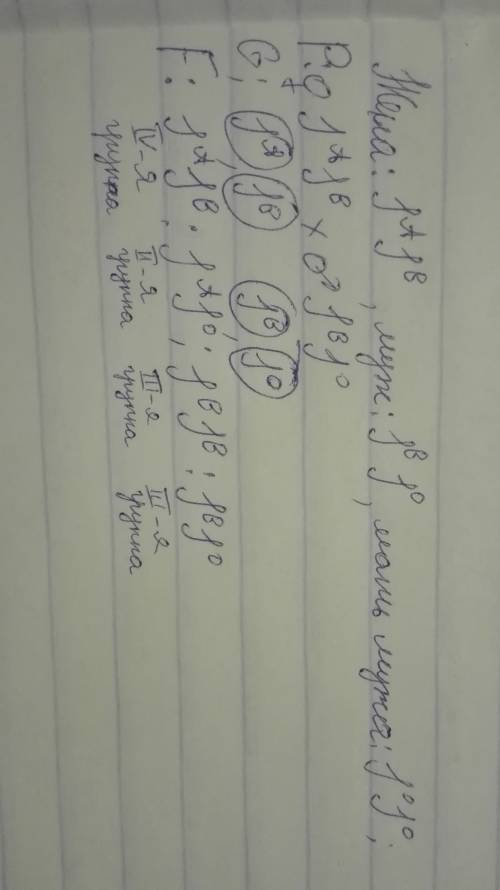 Жена: JᴬJᴮ, муж: JᴮJ⁰, мать мужа: J⁰J⁰;
P: ♀ JᴬJᴮ × ♂ JᴮJ⁰
G: Jᴬ, Jᴮ Jᴮ J⁰
F: JᴬJᴮ; JᴬJ⁰; JᴮJᴮ; JᴮJ⁰
IV-я II-я III-я III-я
группа группа группа группа